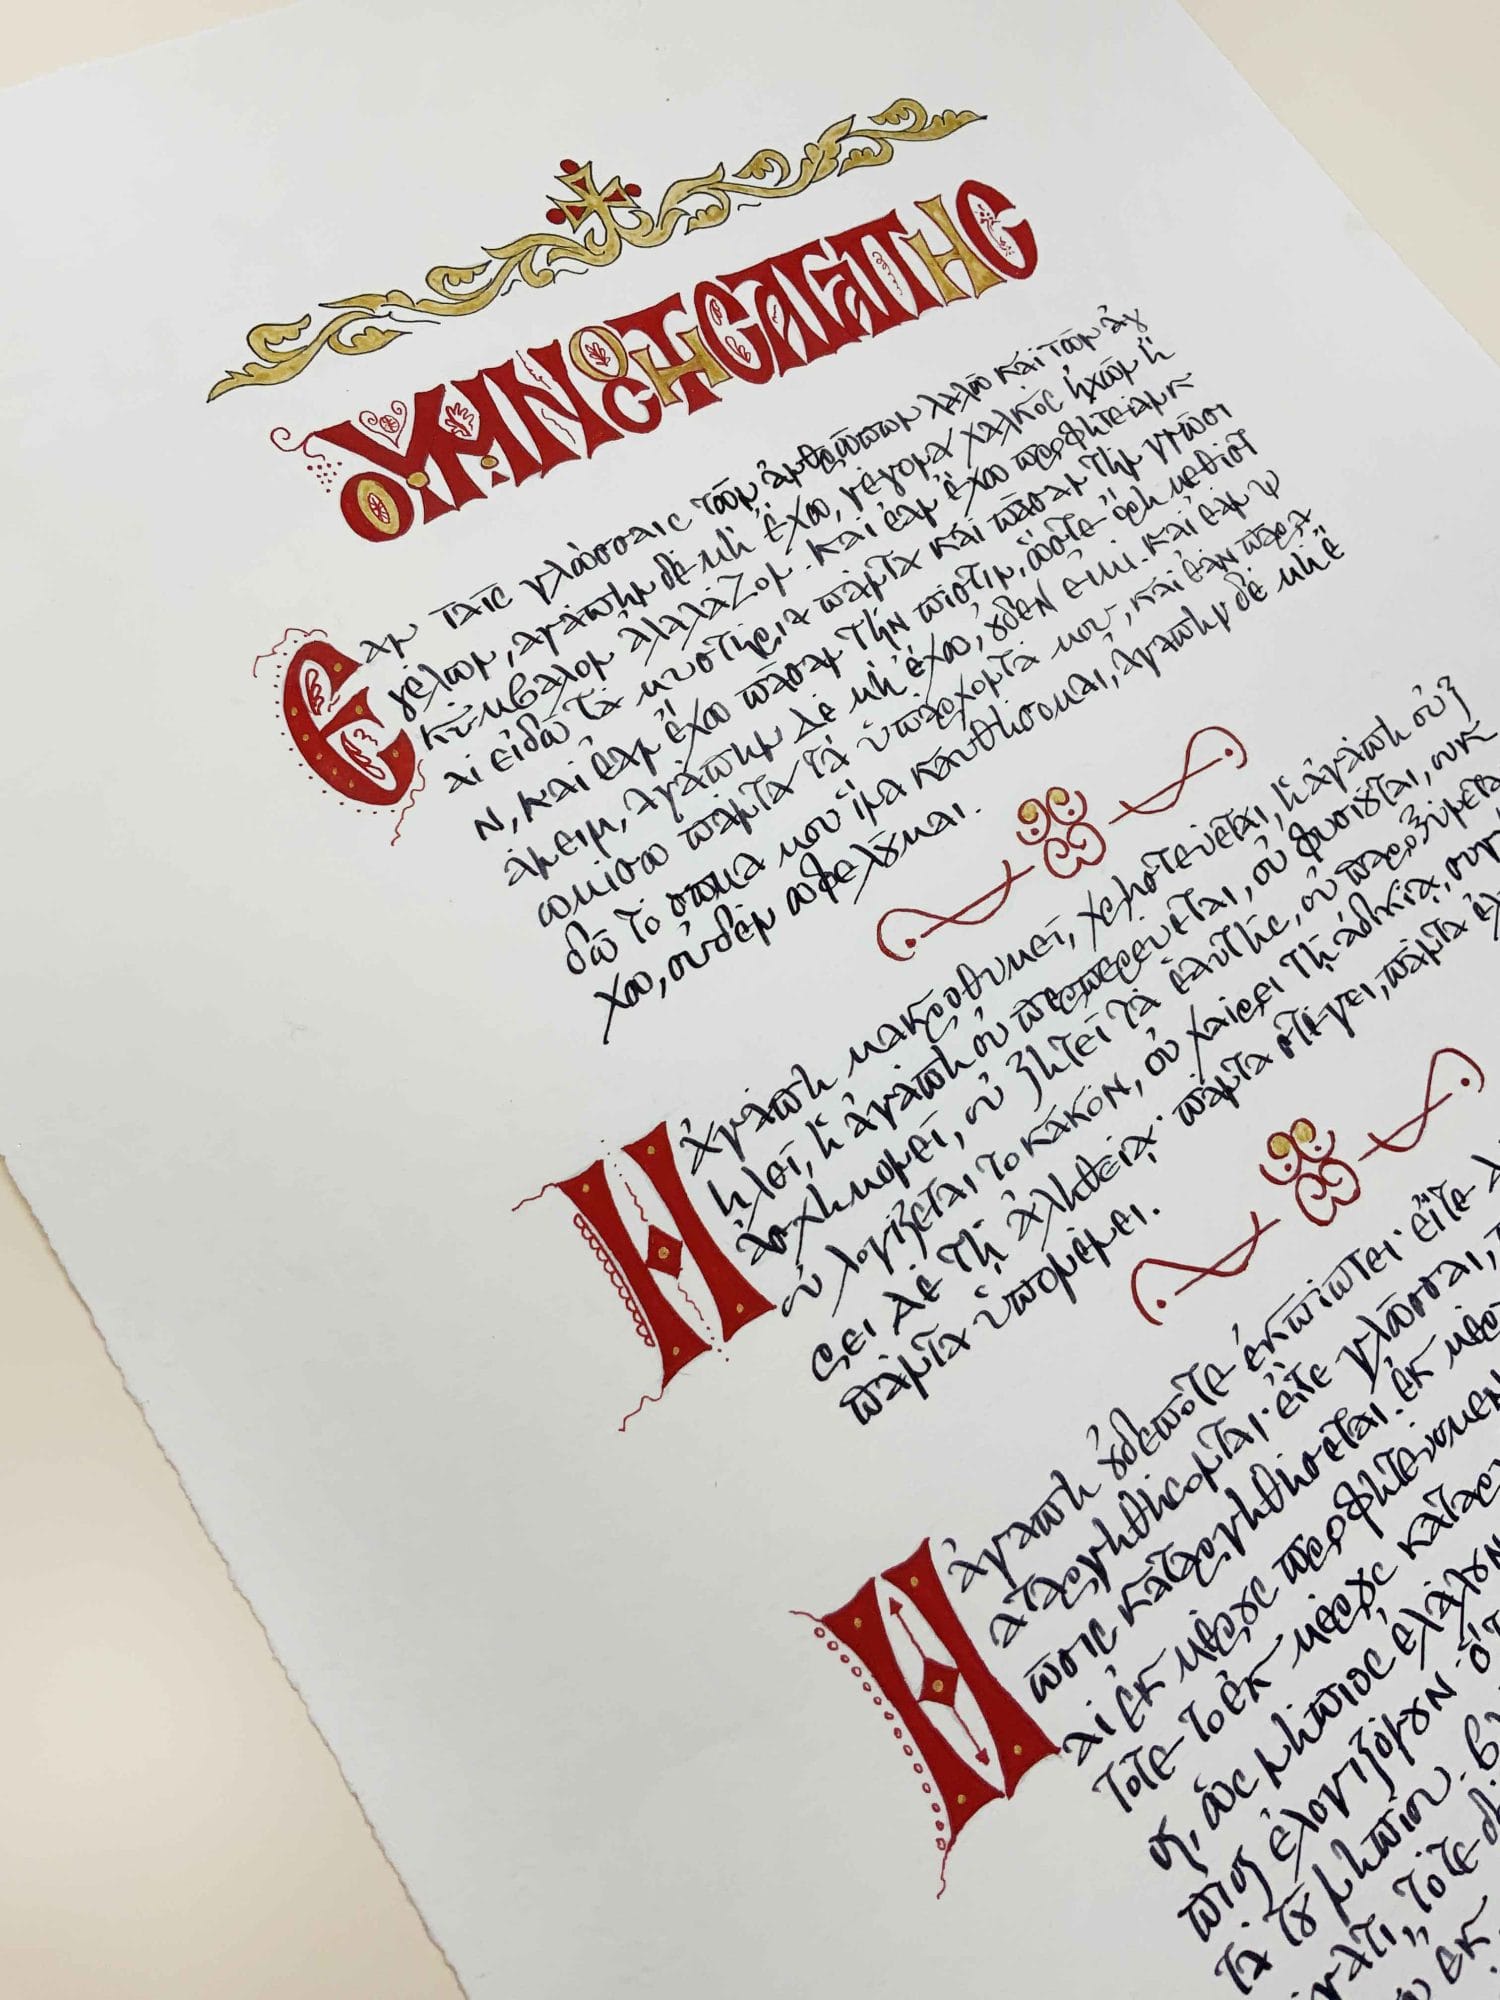 Ο ΥΜΝΟΣ ΤΗΣ ΑΓΑΠΗΣ
Ἐὰν ταῖς γλώσσαις τῶν ἀνθρώπων λαλῶ καὶ τῶν ἀγ
γέλων, ἀγάπην δὲ μὴ ἔχω, γέγονα χαλκὸς ἠχῶν ἢ
κύμβαλον ἀλαλάζον. καὶ ἐὰν ἔχω προφητείαν κ
αὶ εἰδῶ τὰ μυστήρια πάντα καὶ πᾶσαν τὴν γνῶσι
ν, καὶ ἐὰν ἔχω πᾶσαν τὴν πίστιν, ὥστε ὄρη μεθιστ
άνειν, ἀγάπην δὲ μὴ ἔχω, οὐδέν εἰμι. καὶ ἐὰν ψ
ωμίσω πάντα τὰ ὑπάρχοντά μου, καὶ ἐὰν παρα
δῶ τὸ σῶμα μου ἵνα καυθήσομαι, ἀγάπην δὲ μὴ ἔ
χω, οὐδὲν ὠφελοῦμαι.
Ἡ ἀγάπη μακροθυμεῖ, χρηστεύεται, ἡ ἀγάπη οὐ ζ
ηλοῖ, ἡ ἀγάπη οὐ περπερεύεται, οὐ φυσιοῦται, οὐκ
ἀσχημονεῖ, οὐ ζητεῖ τὰ ἑαυτῆς, οὐ παροξύνετα
οὐ λογίζεται τὸ κακόν, οὐ χαίρει τῇ ἀδικίᾳ, συγ
ρει δὲ τῇ ἀληθείᾳ· πάντα στέγει, πάντα
πάντα ὑπομένει.
Ἡ ἀγάπη οὐδέποτε ἐκπίπτει· εἴτε
αταργηθήσονται· εἴτε γλῶσσαι,
ῶσις καταργηθήσεται. ἐκ
αὶ ἐκ μέρους προφητεύομεν
τότε τὸ ἐκ μέρους καταρ
ος, ὡς νήπιος ἐλάλουν
πιος ἐλογιζόμην· ὅτ
τὰ τοῦ νηπίου. β
τότε δὲ
ἐκ